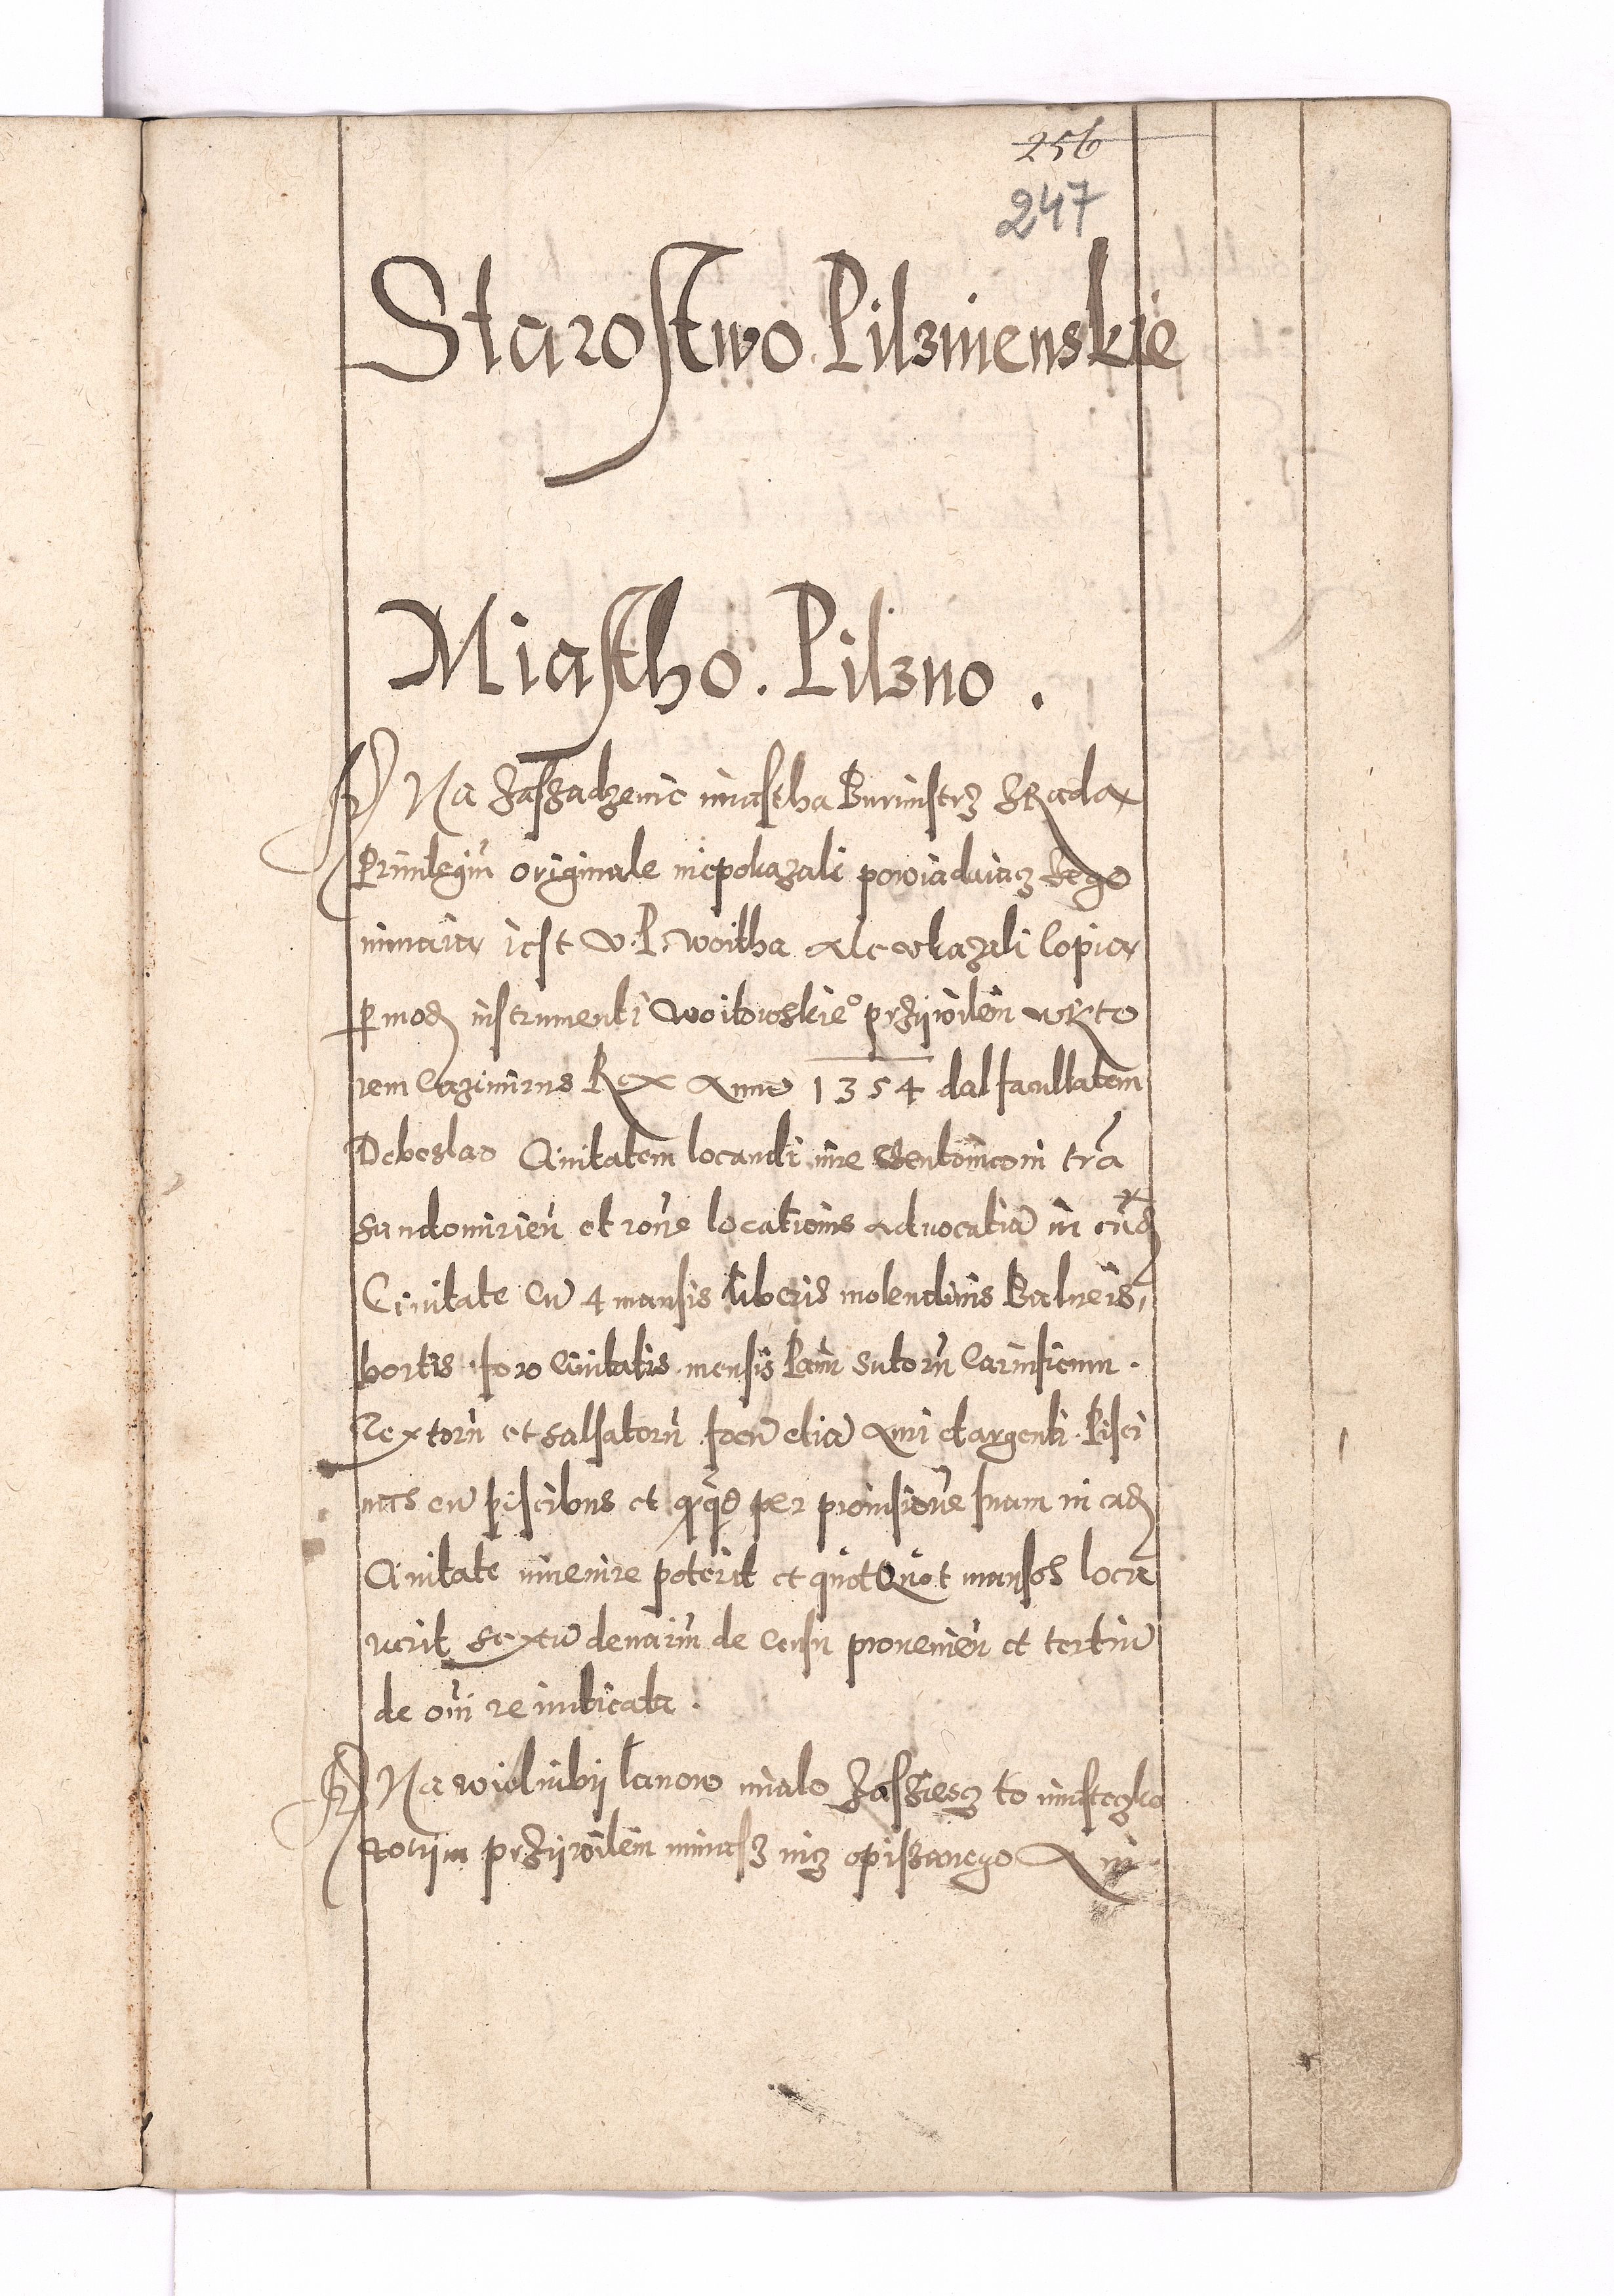 256
247
Starostwo Pilznienskie
Miastho. Pilzno.
Na Zaszadzenie miastha Burmistrz ZRada
Privilegiū originale niepokazali powiadaiącz kego
iest V. P. Woitha Ale Vkazali Copia
p mod instrumenti Woitowskieº przÿwileiu wkto
rem Cazimirus Rex Anno 1354 dal facultatem
Deboslao Civitatem locandi iure tra
Sandomirien et rone locationis advocatiā in ead
Civitate Cū 4 mansis liberis molendinis Balneis,
hortis foro Civitatis mensis Panū Sutorū Carnificum.
Textorū et Salsatorū etiā Auri et argenti. Pisci
nis cū piscibus et qcqd per provisionē suam in ead
Civitate invenire poterit et quotquot mansos loca
verit Sextū denariū de Censu provenien et tertiū
de oni re iudicata.
Na wielubÿ lanow mialo Zaszieszcz to miasteczko
przÿwileiu niasz nicz opiszanego A ni